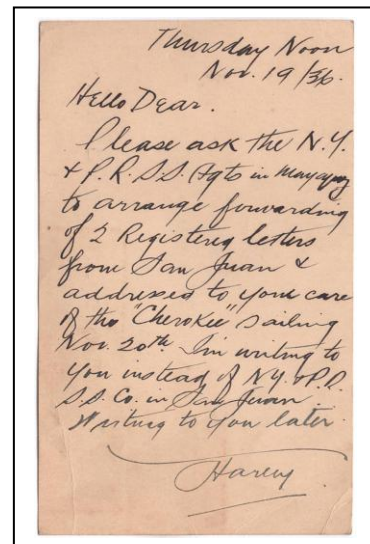 Thursday Noon
Nov. 19/36.
Hello Dear.
Please ask the N.Y.
& P.R. S.S. Agts in Mayaguez
to arrange forwarding
of 2 Registered letters
from San Juan &
addressed to your care
of the "Cherokee" Sailing
Nov. 20th. I'm writing to
you instead of N.Y. & P.R.
S.S. Co. in San Juan.
Writing to you later.
Harvey